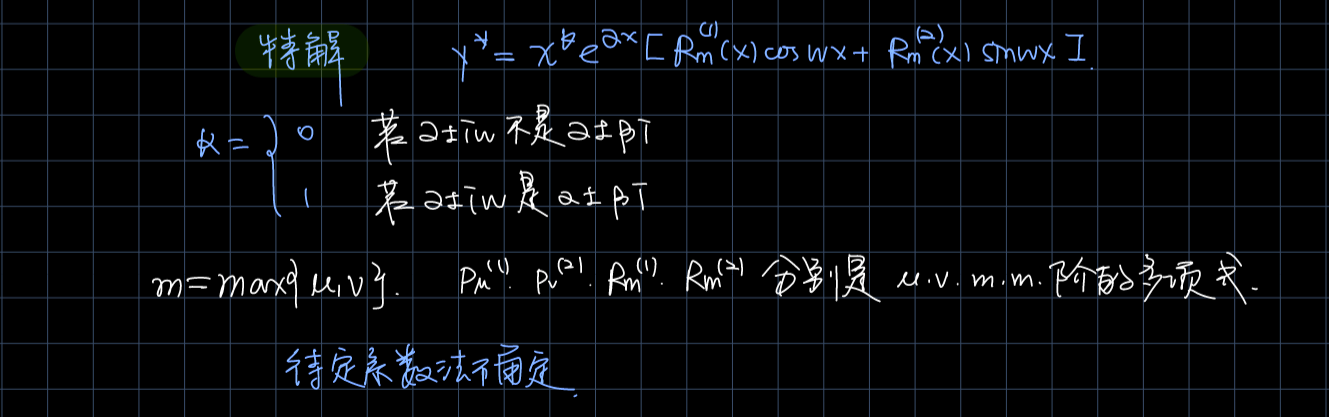 特解 y* = x^k e^{∂x} [ R_m^{(1)}(x) cos wx + R_m^{(2)}(x) sin wx ].
k = { 0 若 ∂±iw 不是 ∂±βi
1 若 ∂±iw 是 α±βi
m = max{u,v}. P_u^{(1)}. P_v^{(2)}. R_m^{(1)}. R_m^{(2)} 分别是 u.v.m.m.阶的多项式.
待定系数法 确定.